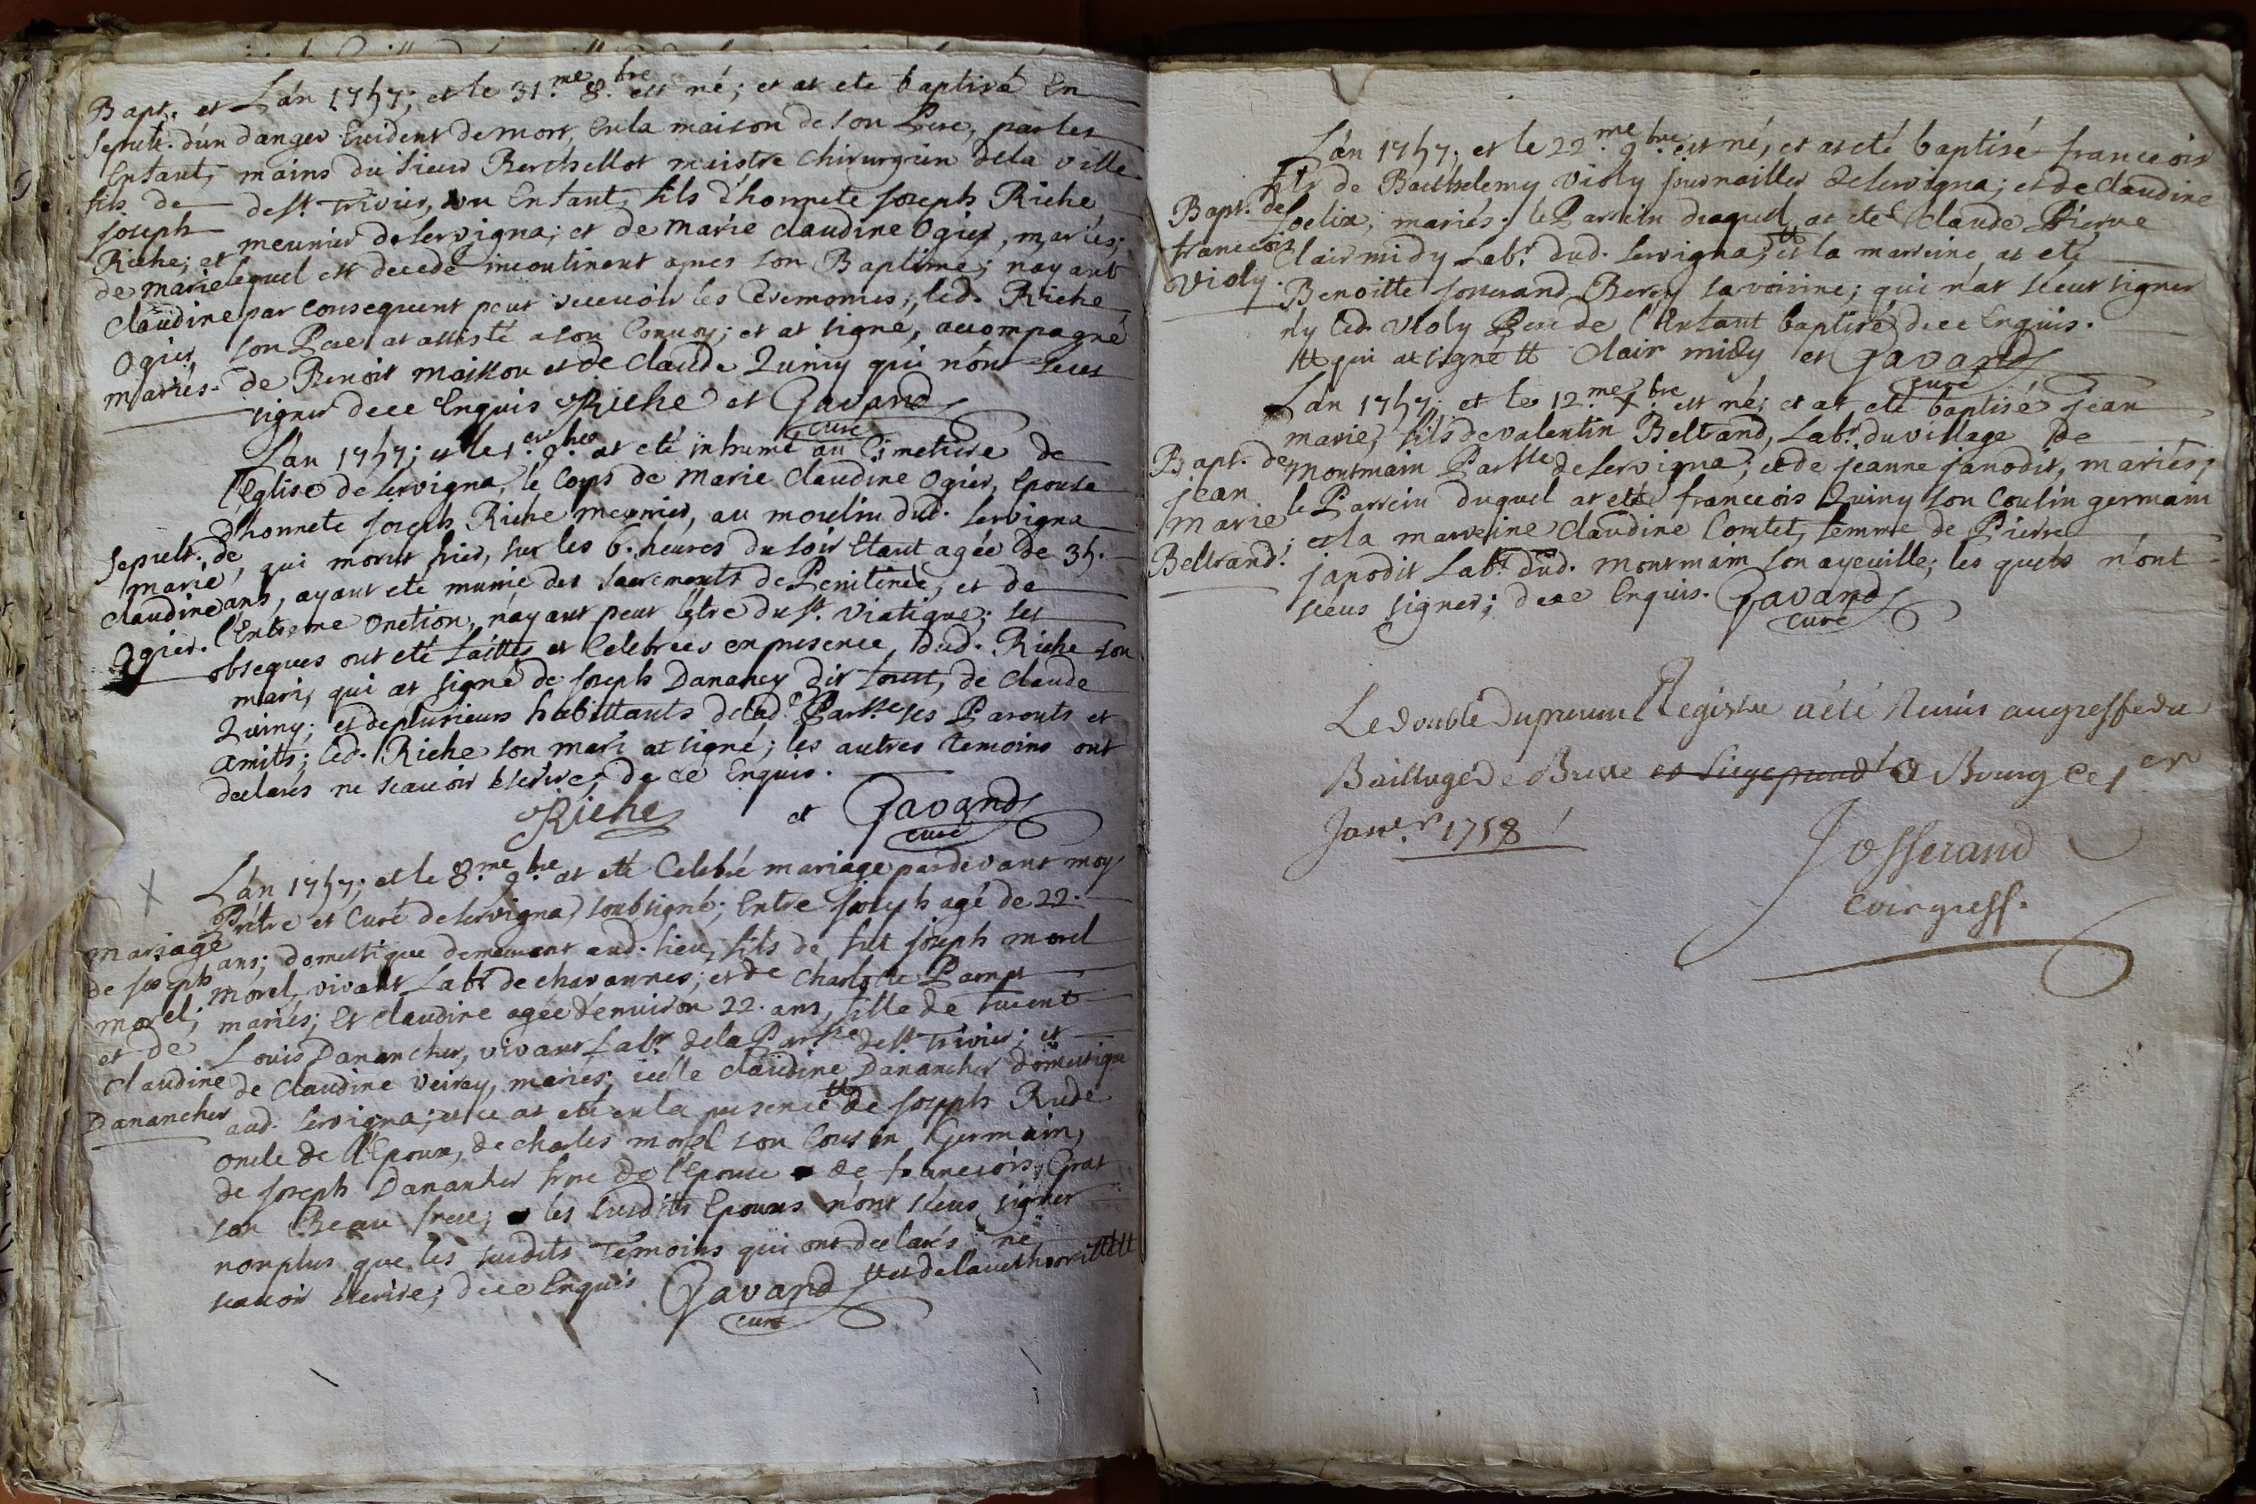 Bapt. et
Sepult. d'un
Enfant,
fils de
joseph
Riche; et
de marie
Claudine
Ogier,
mariés.
L'an 1757; et le 31.me 8.bre est né; et at eté baptisé En
danger Evident de mort, En la maison de son Pere, par les
mains du sieur Berthellot maistre Chirurgien de la ville
de st. Trivier, un Enfant, fils d'honnete joseph Riche
meunier de servigna; et de marie Claudine Ogier, mariés;
lequel est decedé incontinent apres son Baptême; n'ayant
par consequent peut recevoir les Ceremonies; led. Riche
son Pere at assisté a son Convoy; et at signé, accompagné
de Benoit maisson et de Claude Quiny qui n'ont sceus
signer de ce Enquis Riche et Gavand
curé
Sepult. de
marie
Claudine
Ogier.
L'an 1757; et le 1.er 9.bre at eté inhumé au Cimetiere de
l'Eglise de servigna, le Corps de Marie Claudine Ogier, Epouse
d'honnete joseph Riche meunier, au moulin dud. servigna
, qui mourut hier, sur les 6. heures du soir Etant agée de 35.
ans, ayant eté munie des sacrements de Penitence, et de
l'Extreme Onction, n'ayant peut l'être du st. viatique; ses
obseques ont eté faittes et Celebrées en presence dud. Riche son
mari, qui at signé de joseph Dananey dit, de Claude
Quiny; et de plusieurs habittants de lad. Parsse ses Parents et
amits; led. Riche son mari at signé; les autres temoins ont
declarés ne scavoir Escrire, de ce Enquis.
Riche et Gavand
curé
mariage
de joseph
morel;
et de
Claudine
Danancher
L'an 1757; et le 8.me 9.bre at eté Celebré mariage pardevant moy
Prêtre et Curé de servigna soubsigné; Entre joseph agé de 22.
ans; domestique demeurant aud. lieu, fils de fut joseph morel
morel, vivant Labr. de chavannes; et de Charlotte
mariés; Et Claudine agée d'environ 22. ans, fille de furent
Louis Danancher, vivant Labr. de la Parsse de st Trivier; et
de Claudine Veiray, mariés; icelle Claudine Danancher domestique
aud. servigna; et ce at eté en la presence tt de joseph Rude
oncle de l'Epoux, de charles morel son Cousin Germain,
de joseph Danancher frere de l'Epouse de francois Grat
son Beau frere; les susdits Epoux n'ont sceus signer
non plus que les susdits Témoins qui ont declarés ne
scavoir écrire; de ce Enquis Gavand
curé
tt et de l'authorité tttt
Bapt. de
francois
Violy.
L'an 1757; et le 22.me 9.bre est né, et at eté baptisé francois
fils de Barthelemy violy journaillier de servigna; et de Claudine
Loelix; mariés; le Parrein duquel at eté Claude Pierre
Clair midy Labr. dud. servigna; tt et la marreine, at eté
Benoitte sa voisine; qui n'at sceut signer
n'y led. Violy Pere de l'Enfant baptisé de ce Enquis.
tt qui at signé tt Clair midy et Gavand
curé
Bapt. de
jean
marie
Beltrand.
L'an 1757; et le 12.me X.bre est né; et at eté baptisé jean
marie, fils de valentin Beltrand, Labr. du village de
Montmain Parsse de servigna; et de jeanne janodit, mariés;
le Parrein duquel at eté francois Quiny son Cousin germain
; et la marreine Claudine Comtet, femme de Pierre
janodit Labr. dud. montmain son ayeuille; les quels n'ont
sceus signer; de ce Enquis. Gavand
curé
Le double du present Registre a été Remis au greffe du
Bailliage de Bresse a Bourg Ce 1er
Janv.r 1758
Josserand
Com greff.